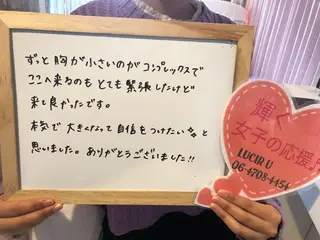 ずっと胸が小さいのがコンプレックスで
ここへ来るのもとても緊張したけど
来て良かったです。
本気で大きくなって自信をつけたい✨と
思いました。ありがとうございました!!
輝く
女子の応援
LUCIR U
06-4708-4454